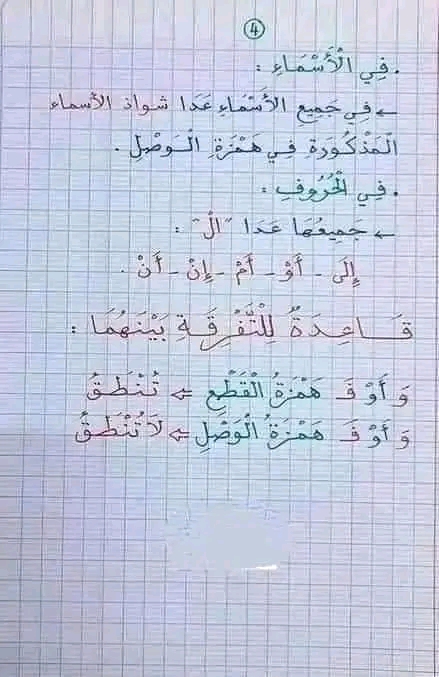 4
. فِي الْأَسْمَاءِ :
← فِي جَمِيعِ الأَسْمَاءِ عَدَا شواذ الأسماء
الْمَذْكُورَةِ فِي هَمْزَةِ الْوَصْلِ .
. فِي الْحُرُوفِ :
← جَمِيعُهَا عَدَا "الْ" :
إِلَى - أَوْ - أَمْ - إِنْ - أَنْ .
قَاعِدَةٌ لِلتَّفْرِقَةِ بَيْنَهُمَا :
وَ أَوْ فَ هَمْزَةُ الْقَطْعِ ⇐ تُنْطَقُ
وَ أَوْ فَ هَمْزَةُ الْوَصْلِ ⇐ لَا تُنْطَقُ